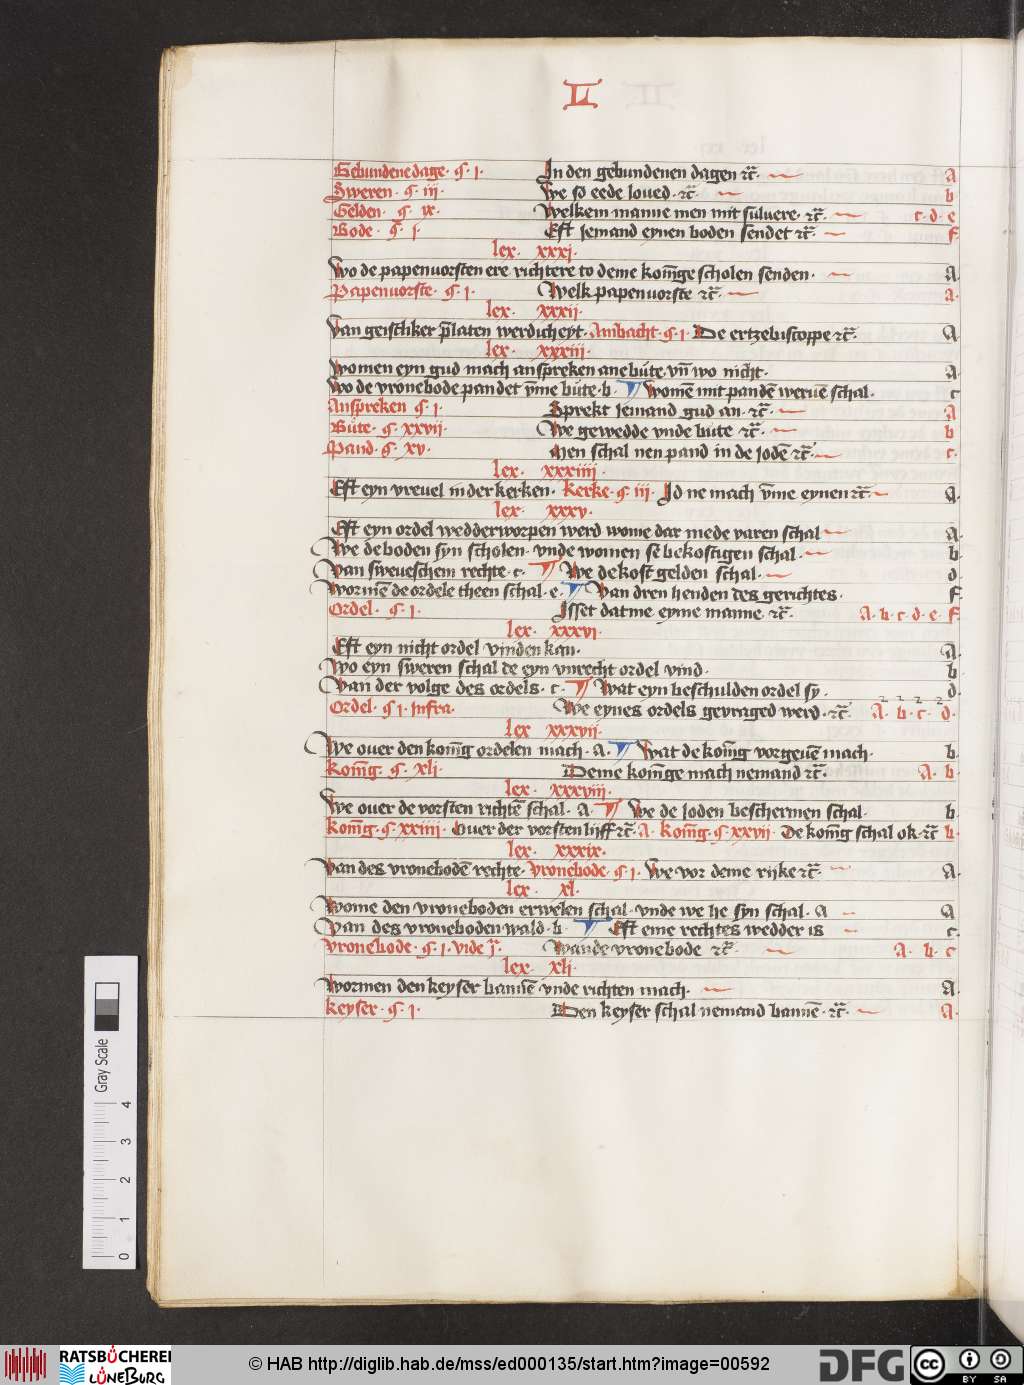 LI
Gebundene dage · ꝗ · j · In den gebundenen dagen ⁊c̄ · a
Zweren · ꝗ · iij · We so eede loued · ⁊c̄ · b
Gelden · ꝗ · ix · Welkem manne men mit suluere · ⁊c̄ · c · d · e
Bode · ꝗ · j · Eft jemand eynen boden sendet ⁊c̄ · f
lex · xxxj ·
Wo de papenuorsten ere richtere to deme kom̄ge scholen senden · A
Papenuorste · ꝗ · j · Welk papenuorste ⁊c̄ · a
lex · xxxij ·
Van geistliker p̄laten werdicheyt · Ambacht · ꝗ · j · De ertzebiscoppe ⁊c̄ · A
lex · xxxiij ·
Wo men eyn gud mach anspreken ane bute vn̄ wo nicht · A
Wo de vronebode pandet v̄me bute · b · Womē mit pandē weruē schal · c
Anspreken ꝗ · j · Sprekt jemand gud an · ⁊c̄ · a
Bute · ꝗ · xxvij · We gewedde vnde bute ⁊c̄ · b
Pand · ꝗ · xv · Men schal nen pand in de jodē ⁊c̄ · c
lex · xxxiiij ·
Eft eyn vreuel in der kerken · Kerke · ꝗ · iij · Id ne mach v̄me eynen ⁊c̄ · A
lex · xxxv ·
Eft eyn ordel wedderworpen werd wome dar mede varen schal A
We de boden syn scholen · vnde wo men se bekostigen schal · b
Van sweueschem rechte · c · We de kost gelden schal · d
Wormē de ordele theen schal · e · Van dren henden des gerichtes · f
Ordel · ꝗ · j · Isset dat me eyme manne · ⁊c̄ · A · b · c · d · e · f
lex · xxxvj ·
Eft eyn nicht ordel vinden kan · A
Wo eyn sweren schal de eyn vnrecht ordel vind · b
Van der volge des ordels · c · Wat eyn beschulden ordel sy · d
Ordel · ꝗ · j · infra · We eynes ordels gevraged werd · ⁊c̄ A · b · c · d
lex xxxvij ·
We ouer den kom̄g ordelen mach · A · Wat de kom̄g vorgeuē mach · b
Kom̄g · ꝗ · xlj · Deme kom̄ge mach nemand ⁊c̄ · A · b
lex · xxxviij ·
We ouer de vorsten richtē schal · A · We de joden beschermen schal · b
Kom̄g · ꝗ · xxiiij · Ouer der vorsten lijff ⁊c̄ · A · Kom̄g · ꝗ · xxvij · De kom̄g schal ok · ⁊c̄ b
lex · xxxix ·
Van des vronebodē rechte · Vronebode · ꝗ · j · We vor deme rijke ⁊c̄ · A
lex · xl ·
Wome den vroneboden erwelen schal · vnde we he syn schal · A A
Van des vroneboden wald · b · Eft eme rechtes wedder is c
Vronebode · ꝗ · j · vnde Wande vronebode ⁊c̄ A · b · c
lex · xlj ·
Wormen den keyser bannē vnde richten mach · A
Keyser · ꝗ · j · Den keyser schal nemand bannē · ⁊c̄ · A
Gray Scale
0 1 2 3 4
RATSBÜCHEREI LÜNEBURG
© HAB http://diglib.hab.de/mss/ed000135/start.htm?image=00592
DFG
cc BY SA